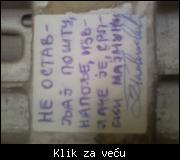 НЕ ОСТАВ-
ЉАЈ ПОШТУ,
НАПОЉЕ, ИЗВ-
ЛАЧЕ ЈЕ, СРП-
СКИ МАЈМУНИ
Klik za veću